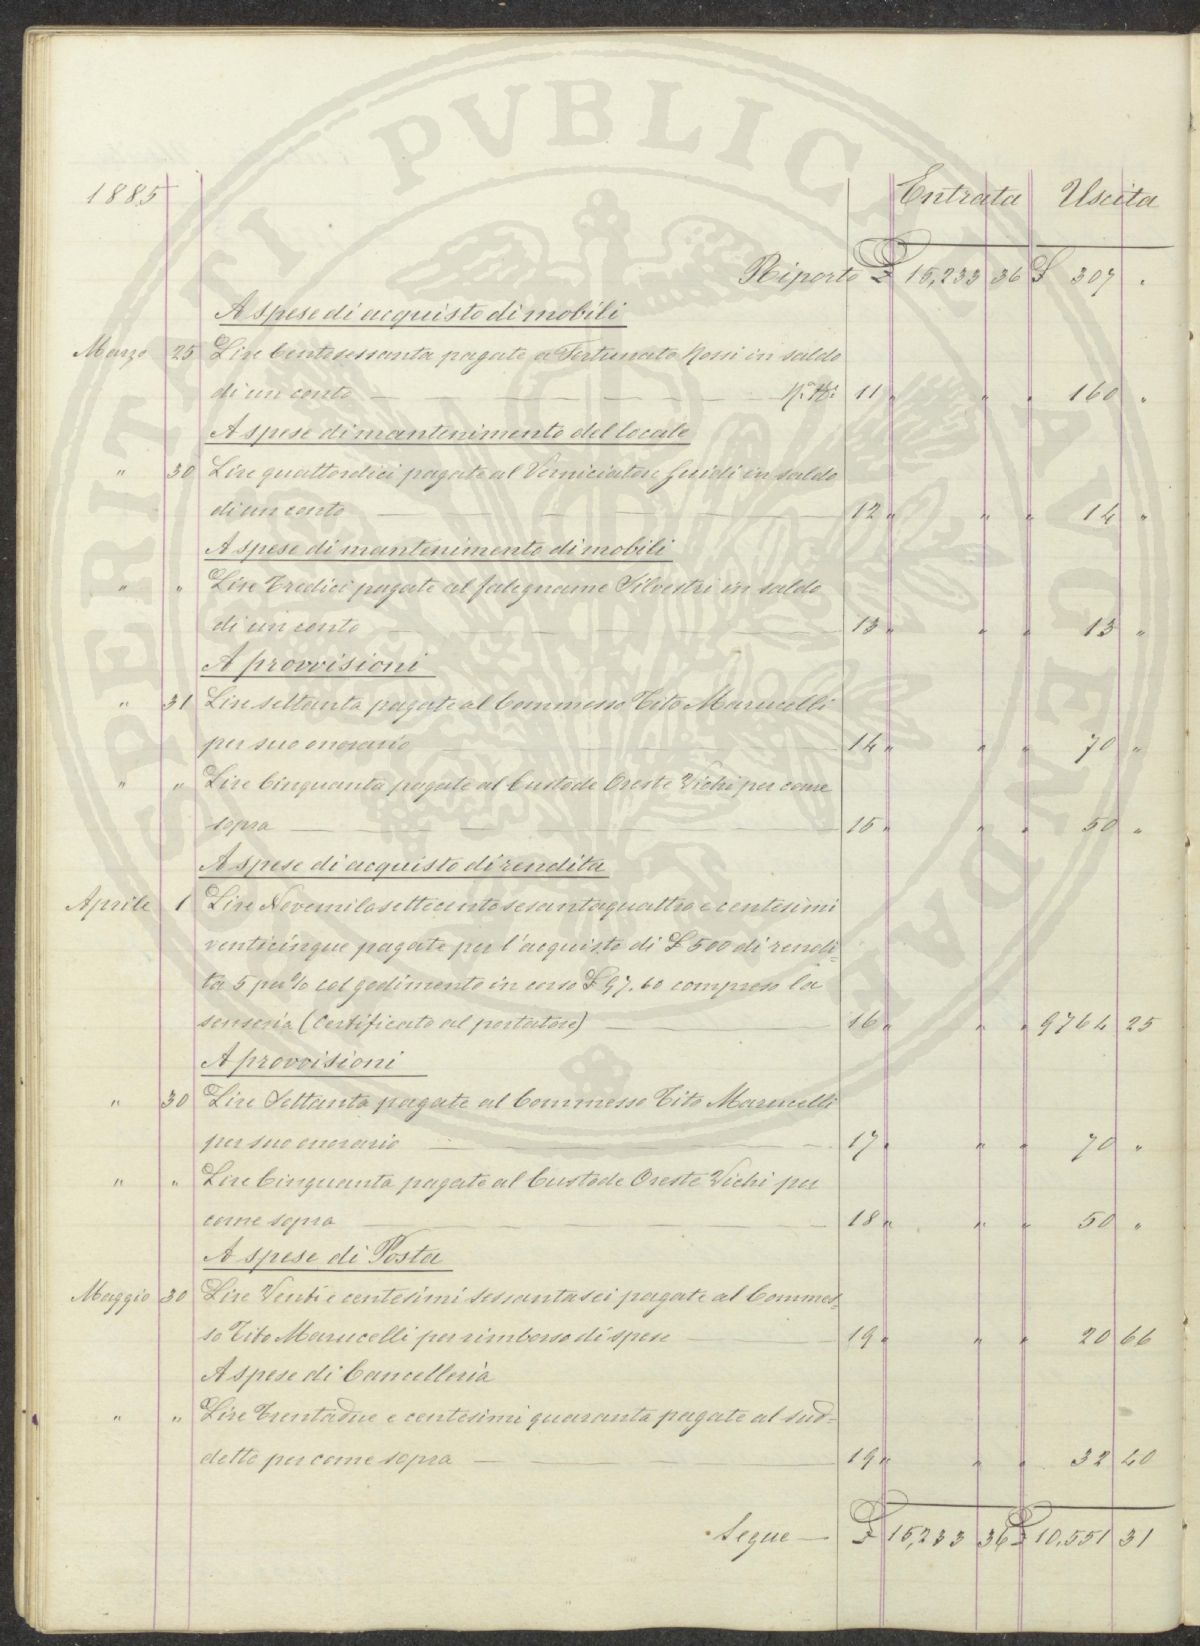 1885 Entrata Uscita
Riporto £ 15,233 36 £ 307 "
A spese di acquisto di mobili
Marzo 25 Lire Centosessanta pagate a Fortunato Rossi in saldo
di un conto — 11 " " " 160 "
A spese di mantenimento del locale
" 30 Lire quattordici pagate al Verniciatore Guidi in saldo
di un conto — 12 " " " 14 "
A spese di mantenimento di mobili
" " Lire Tredici pagate al falegname Silvestri in saldo
di un conto — 13 " " " 13 "
A provvisioni
" 31 Lire settanta pagate al Commesso Tito Marucelli
per suo onorario — 14 " " " 70 "
" " Lire Cinquanta pagate al Custode Oreste Vichi per come
sopra — 15 " " " 50 "
A spese di acquisto di rendita
Aprile 1 Lire Novemilasettecentosesantaquattro e centesimi
venticinque pagate per l'acquisto di £ 500 di rendi=
ta 5 per % col godimento in corso £ 97.60 compreso la
senseria (Certificato al portatore) — 16 " " " 9764 25
A provvisioni
" 30 Lire Settanta pagate al Commesso Tito Marucelli
per suo onorario — 17 " " " 70 "
" " Lire Cinquanta pagate al Custode Oreste Vichi per
come sopra — 18 " " " 50 "
A spese di Posta
Maggio 30 Lire Venti e centesimi sessantasei pagate al Commes=
so Tito Marucelli per rimborso di spese — 19 " " " 20 66
A spese di Cancelleria
" " Lire Trentadue e centesimi quaranta pagate al sud=
detto per come sopra — 19 " " " 32 40
Segue — £ 15,233 36 £ 10,551 31
PVBLICAE AVGENDAE PERITATI